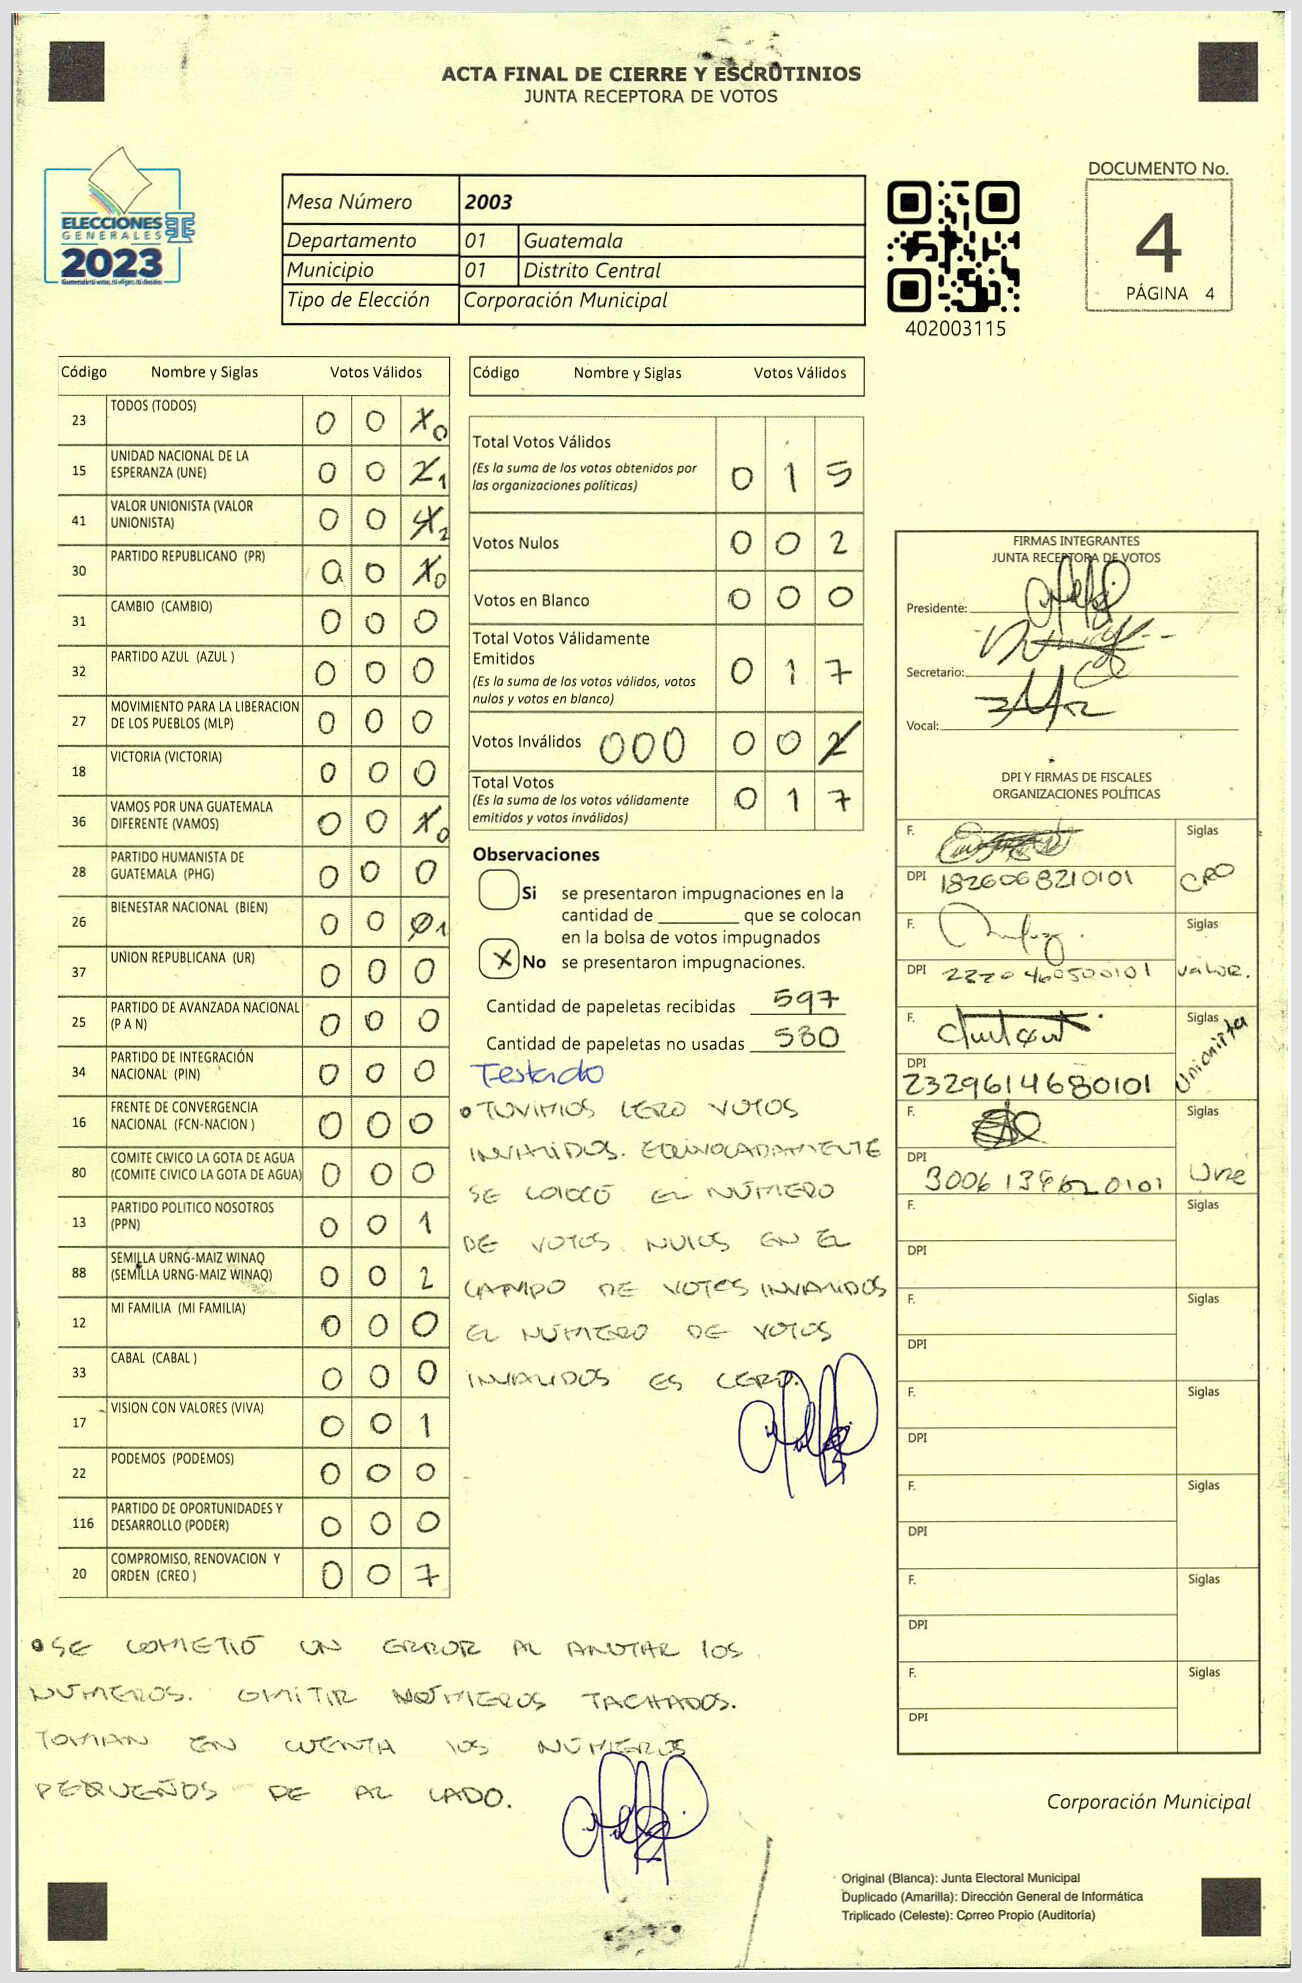 ACTA FINAL DE CIERRE Y ESCRUTINIOS
JUNTA RECEPTORA DE VOTOS
ELECCIONES
GENERALES
2023
Mesa Número 2003
Departamento 01 Guatemala
Municipio 01 Distrito Central
Tipo de Elección Corporación Municipal
402003115
DOCUMENTO No.
4
PÁGINA 4
Código Nombre y Siglas Votos Válidos
23 TODOS (TODOS) 0 0 X 0
15 UNIDAD NACIONAL DE LA ESPERANZA (UNE) 0 0 1
41 VALOR UNIONISTA (VALOR UNIONISTA) 0 0 2
30 PARTIDO REPUBLICANO (PR) 0 0 0
31 CAMBIO (CAMBIO) 0 0 0
32 PARTIDO AZUL (AZUL ) 0 0 0
27 MOVIMIENTO PARA LA LIBERACION DE LOS PUEBLOS (MLP) 0 0 0
18 VICTORIA (VICTORIA) 0 0 0
36 VAMOS POR UNA GUATEMALA DIFERENTE (VAMOS) 0 0 0
28 PARTIDO HUMANISTA DE GUATEMALA (PHG) 0 0 0
26 BIENESTAR NACIONAL (BIEN) 0 0 0 1
37 UNION REPUBLICANA (UR) 0 0 0
25 PARTIDO DE AVANZADA NACIONAL (P A N) 0 0 0
34 PARTIDO DE INTEGRACIÓN NACIONAL (PIN) 0 0 0
16 FRENTE DE CONVERGENCIA NACIONAL (FCN-NACION ) 0 0 0
80 COMITE CIVICO LA GOTA DE AGUA (COMITE CIVICO LA GOTA DE AGUA) 0 0 0
13 PARTIDO POLITICO NOSOTROS (PPN) 0 0 1
88 SEMILLA URNG-MAIZ WINAQ (SEMILLA URNG-MAIZ WINAQ) 0 0 2
12 MI FAMILIA (MI FAMILIA) 0 0 0
33 CABAL (CABAL ) 0 0 0
17 VISION CON VALORES (VIVA) 0 0 1
22 PODEMOS (PODEMOS) 0 0 0
116 PARTIDO DE OPORTUNIDADES Y DESARROLLO (PODER) 0 0 0
20 COMPROMISO, RENOVACION Y ORDEN (CREO ) 0 0 7
Código Nombre y Siglas Votos Válidos
Total Votos Válidos 0 1 5
(Es la suma de los votos obtenidos por
las organizaciones políticas)
Votos Nulos 0 0 2
Votos en Blanco 0 0 0
Total Votos Válidamente
Emitidos 0 1 7
(Es la suma de los votos válidos, votos
nulos y votos en blanco)
Votos Inválidos 000 0 0 2
Total Votos 0 1 7
(Es la suma de los votos válidamente
emitidos y votos inválidos)
Observaciones
Si se presentaron impugnaciones en la
cantidad de ________ que se colocan
en la bolsa de votos impugnados
X No se presentaron impugnaciones.
Cantidad de papeletas recibidas 597
Cantidad de papeletas no usadas 580
Testado
• TUVIMOS CERO VOTOS
INVALIDOS. EQUIVOCADAMENTE
SE COLOCÓ EL NÚMERO
DE VOTOS NULOS EN EL
CAMPO DE VOTOS INVALIDOS
EL NÚMERO DE VOTOS
INVALIDOS ES CERO.
FIRMAS INTEGRANTES
JUNTA RECEPTORA DE VOTOS
Presidente:
Secretario:
Vocal:
DPI Y FIRMAS DE FISCALES
ORGANIZACIONES POLÍTICAS
F. Siglas
DPI 1826068210101
F. Siglas
DPI 2220460500101 Valor.
F. Siglas
DPI 2329614680101 Unionista
F. Siglas
DPI Une
F. Siglas
DPI
F. Siglas
DPI
F. Siglas
DPI
F. Siglas
DPI
F. Siglas
DPI
F. Siglas
DPI
• SE COMETIÓ UN ERROR AL ANOTAR LOS
NÚMEROS. OMITIR NÚMEROS TACHADOS.
TOMAR EN CUENTA LOS NÚMEROS
PEQUEÑOS DE AL LADO.
Corporación Municipal
Original (Blanca): Junta Electoral Municipal
Duplicado (Amarilla): Dirección General de Informática
Triplicado (Celeste): Correo Propio (Auditoría)